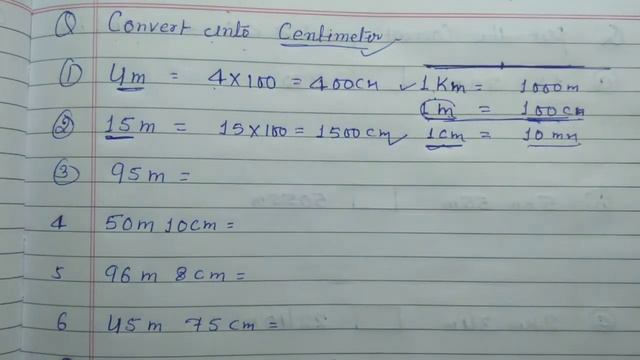 Q Convert into Centimeter
① 4m = 4×100 = 400cm ✓ 1 Km = 1000m
1m = 100cm
② 15m = 15×100 = 1500cm ✓ 1cm = 10mm
③ 95m =
4 50m 10cm =
5 96m 8cm =
6 45m 75cm =